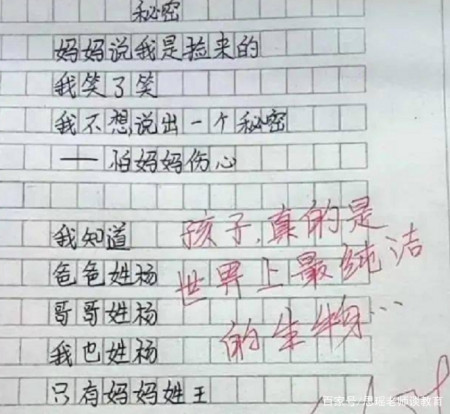 秘密
妈妈说我是捡来的
我笑了笑
我不想说出一个秘密
——怕妈妈伤心
我知道
爸爸姓杨
哥哥姓杨
我也姓杨
只有妈妈姓王
孩子，真的是
世界上最纯洁
的生物…
百家号/思瑶老师谈教育